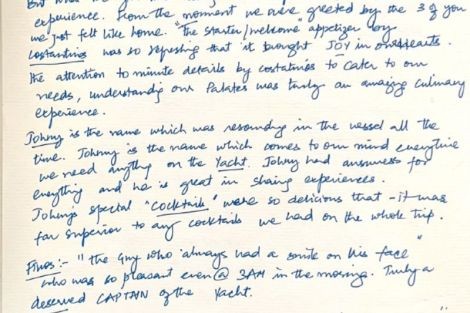 But what we
experience. From the moment we were greeted by the 3 of you
we just felt like home. "The starter/welcome" appetizer by
Costantinos was so refreshing that it brought JOY in our hearts.
The attention to minute details by costatinos to cater to our
needs, understanding our Palates was truly an amazing culinary
experience.
Johny is the name which was resounding in the vessel all the
time. Johny is the name which comes to our mind everytime
we need anything on the Yacht. Johny had answers for
everything and he is great in sharing experiences.
Johnys special "cocktails" were so delicious that - it was
far superior to any cocktails we had on the whole trip.
Finos:- "the Guy who always had a smile on his face"
who was so pleasant even @ 3AM in the morning. Truly a
deserved CAPTAIN of the Yacht.